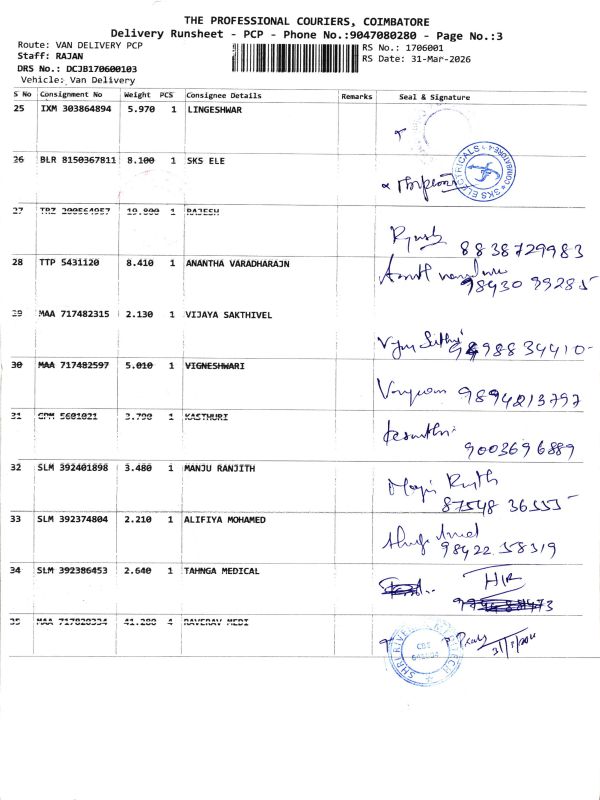 THE PROFESSIONAL COURIERS, COIMBATORE
Delivery Runsheet - PCP - Phone No.:9047080280 - Page No.:3
Route: VAN DELIVERY PCP
Staff: RAJAN
DRS No.: DCJB170600103
Vehicle: Van Delivery
RS No.: 1706001
RS Date: 31-Mar-2026
S No Consignment No Weight PCS Consignee Details Remarks Seal & Signature
25 IXM 303864894 5.970 1 LINGESHWAR
26 BLR 8150367811 8.100 1 SKS ELE
SKS ELECTRICALS
27 TRZ 200564957 19.000 1 RAJESH
8838729983
28 TTP 5431120 8.410 1 ANANTHA VARADHARAJN
98430 99285
29 MAA 717482315 2.130 1 VIJAYA SAKTHIVEL
30 MAA 717482597 5.010 1 VIGNESHWARI
9894813797
31 CPM 5601021 3.790 1 KASTHURI
9003696889
32 SLM 392401898 3.480 1 MANJU RANJITH
87548 36555
33 SLM 392374804 2.210 1 ALIFIYA MOHAMED
98422 58319
34 SLM 392386453 2.640 1 TAHNGA MEDICAL
35 MAA 717820334 41.280 4 RAVERAV MEDI